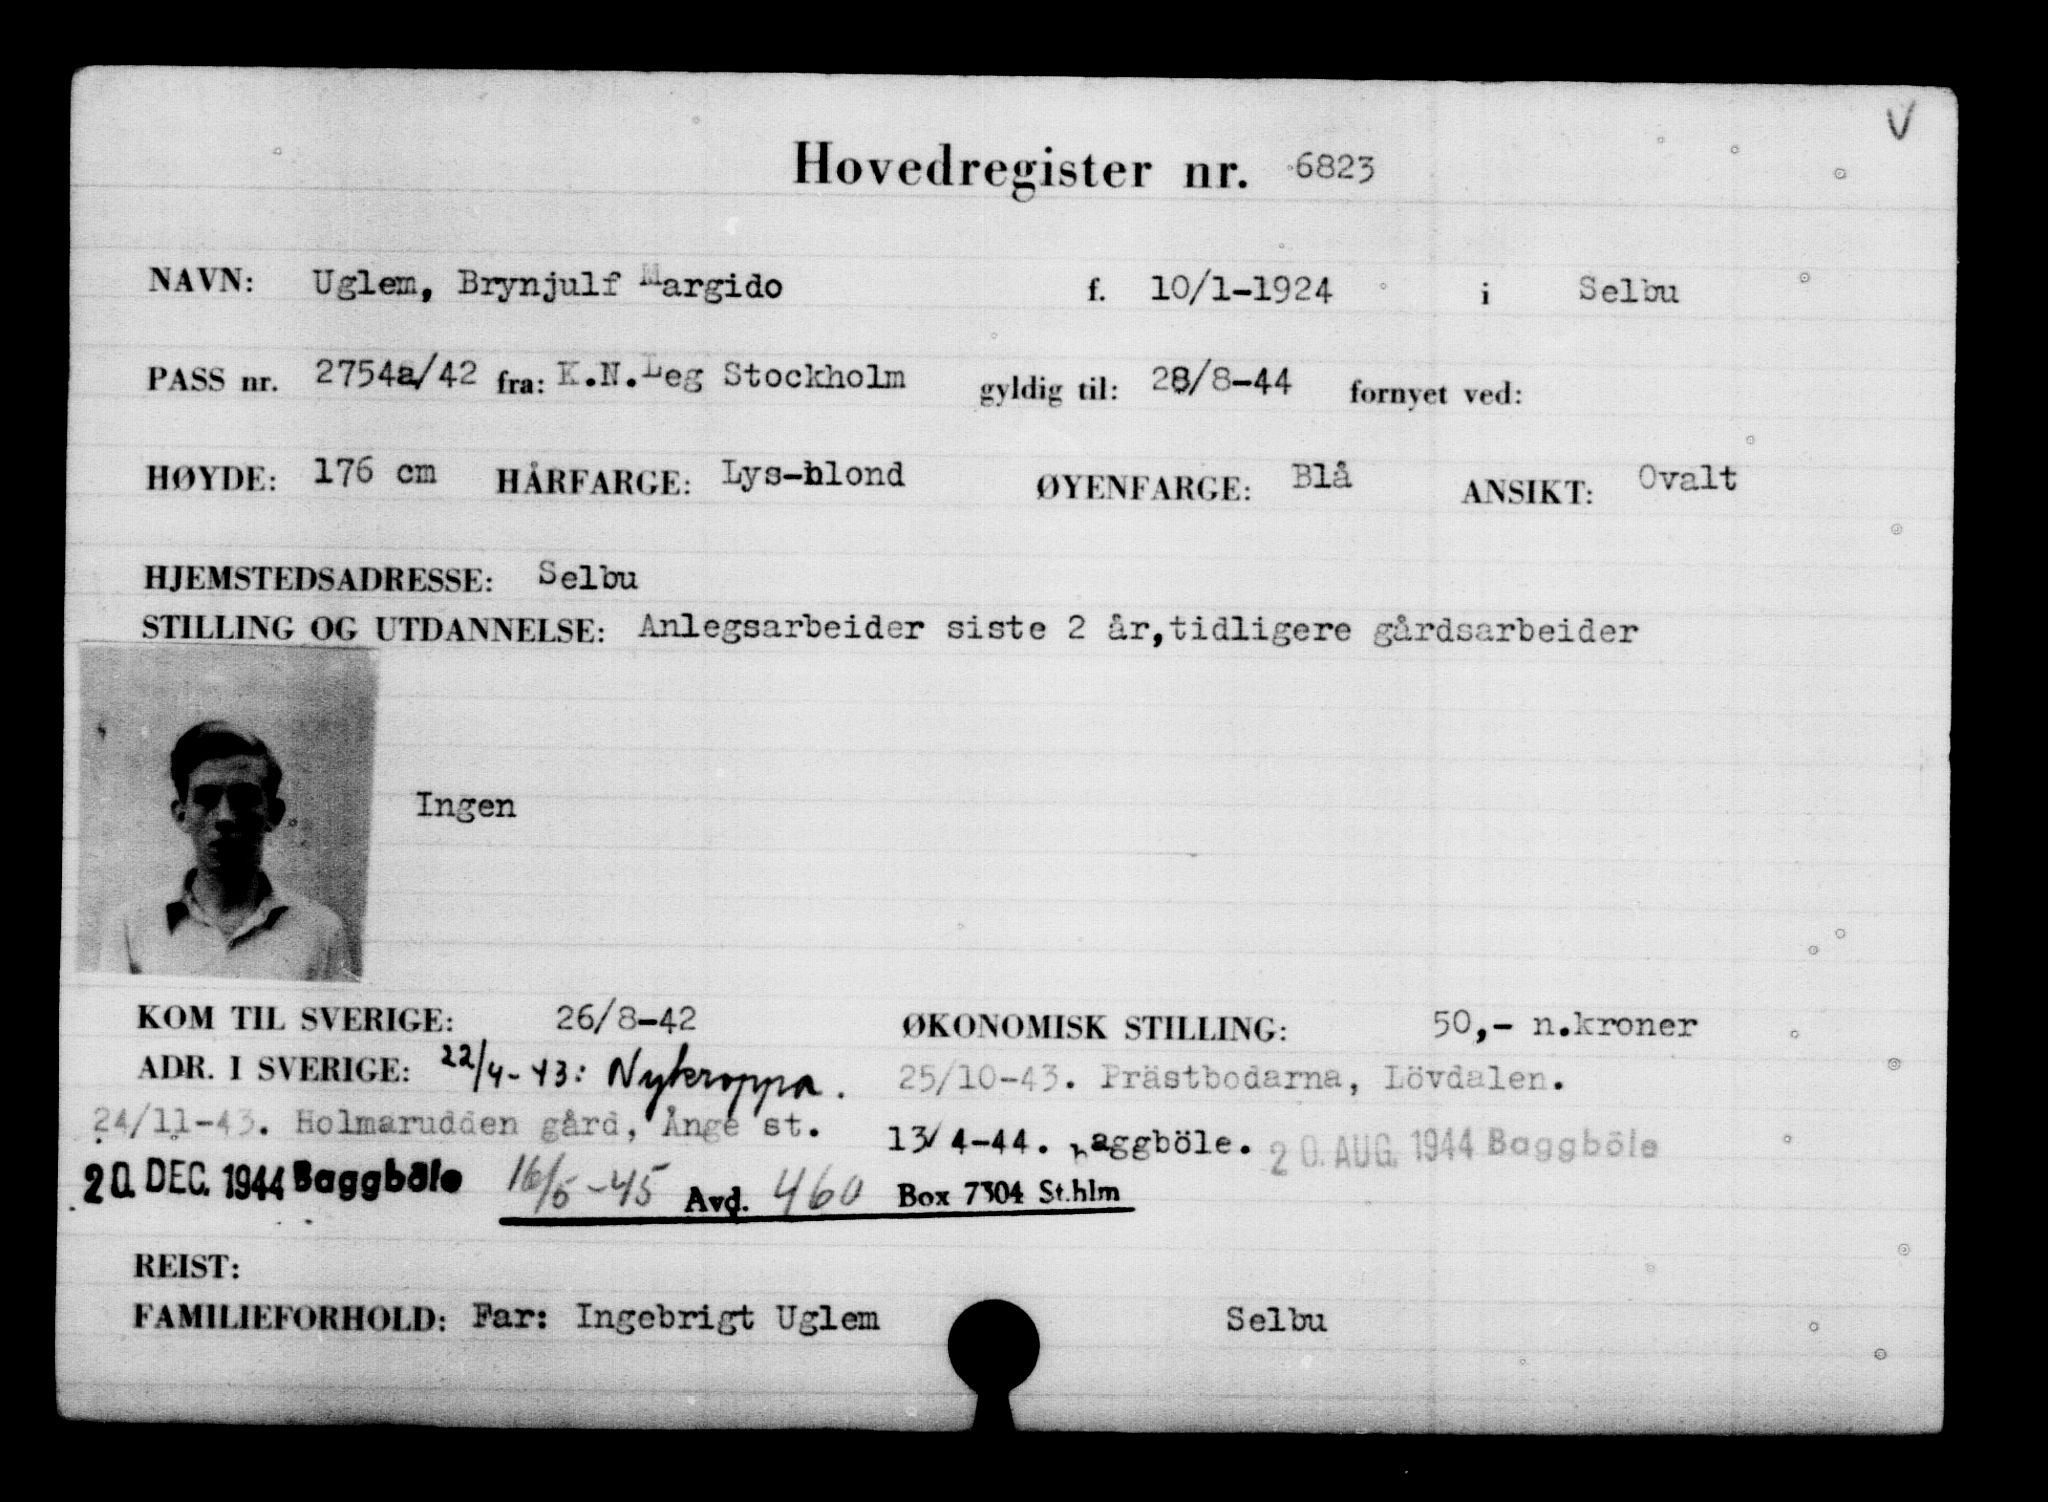 V
Hovedregister nr. 6823
NAVN: Uglem, Brynjulf Margido f. 10/1-1924 i Selbu
PASS nr. 2754a/42 fra: K.N.Leg Stockholm gyldig til: 28/8-44 fornyet ved:
HØYDE: 176 cm HÅRFARGE: Lys-blond ØYENFARGE: Blå ANSIKT: Ovalt
HJEMSTEDSADRESSE: Selbu
STILLING OG UTDANNELSE: Anlegsarbeider siste 2 år,tidligere gårdsarbeider
Ingen
KOM TIL SVERIGE: 26/8-42 ØKONOMISK STILLING: 50,- n.kroner
ADR. I SVERIGE: 22/4-43: Nykroppa. 25/10-43. Prästbodarna, Lövdalen.
24/11-43. Holmarudden gård, Ånge st. 13/4-44. Baggböle. 20. AUG. 1944 Baggböle
20. DEC. 1944 Baggböle 16/5-45 Avd. 460 Box 7304 St.hlm
REIST:
FAMILIEFORHOLD: Far: Ingebrigt Uglem Selbu